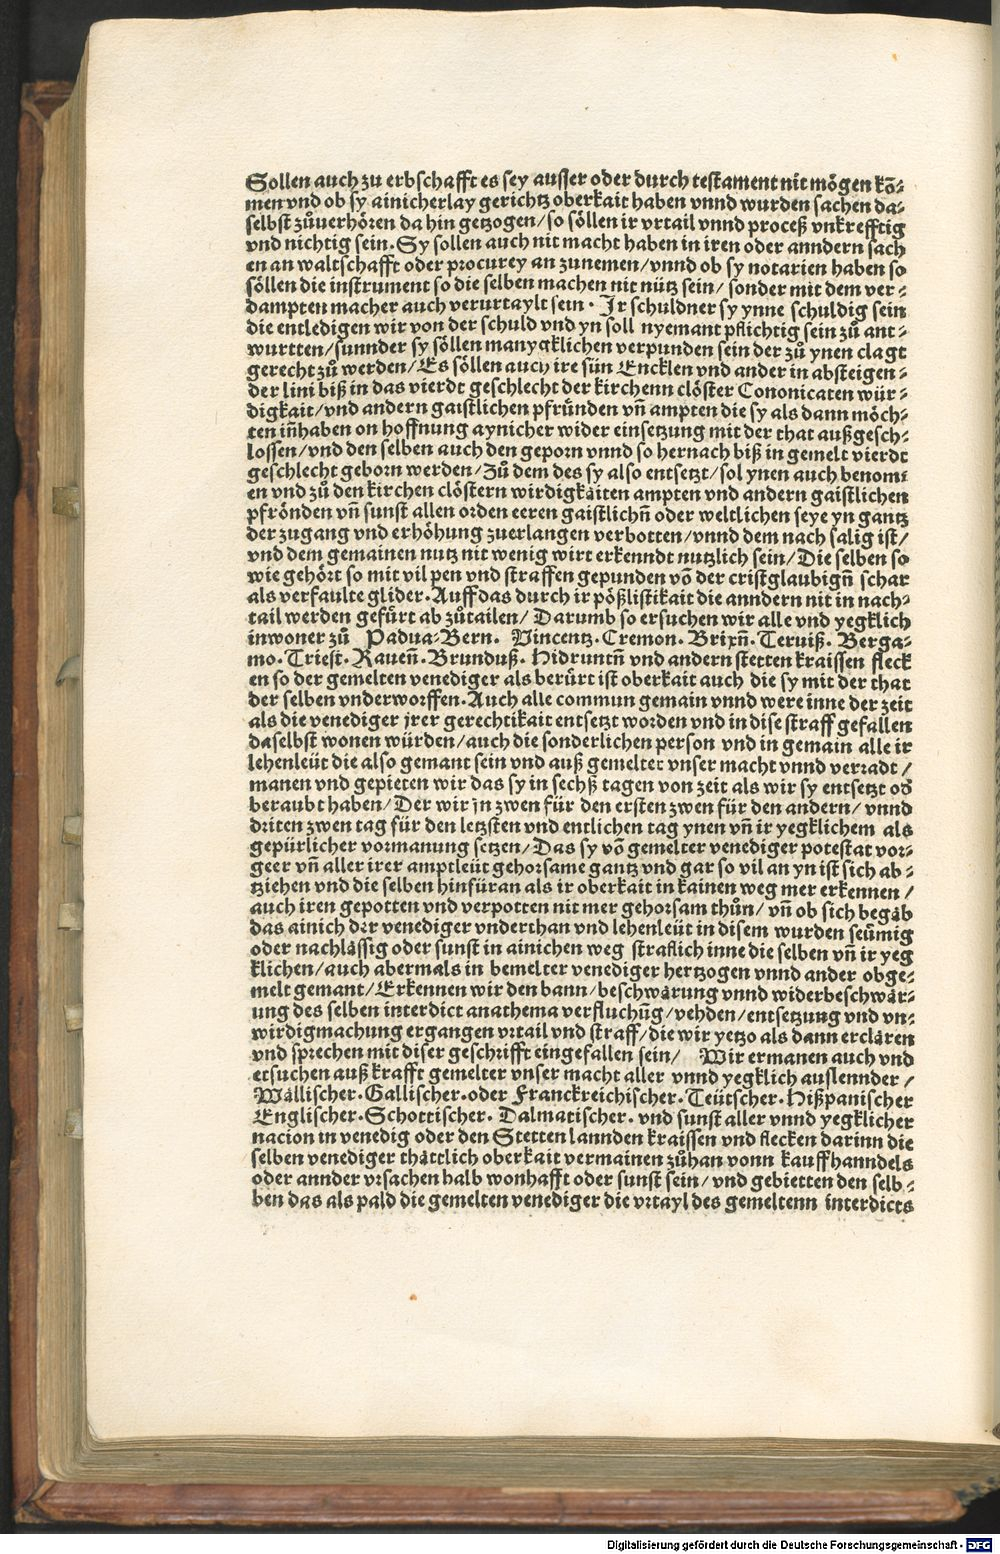 Sollen auch zu erbschafft es sey ausser oder durch testament nit mögen kō-
men vnd ob sy ainicherlay gerichtz oberkait haben vnnd wurden sachen da-
selbst zůuerhören da hin getzogen/so söllen ir vrtail vnnd proceß vnkrefftig
vnd nichtig sein. Sy sollen auch nit macht haben in iren oder anndern sach
en an waltschafft oder procurey an zunemen/vnnd ob sy notarien haben so
söllen die instrument so die selben machen nit nütz sein/ sonder mit dem ver-
dampten macher auch verurtaylt sein. Ir schuldner sy ynne schuldig sein
die entledigen wir von der schuld vnd yn soll nyemant pflichtig sein zů ant-
wurtten/sunnder sy söllen manygklichen verpunden sein der zů ynen clagt
gerecht zů werden/Es söllen auch ire sün Encklen vnd ander in absteigen-
der lini biß in das vierdt geschlecht der kirchenn clöster Cononicaten wür-
digkait/vnd andern gaistlichen pfründen vn̄ ampten die sy als dann möch-
ten in̄haben on hoffnung aynicher wider einsetzung mit der that außgesch-
lossen/vnd den selben auch den geporn vnnd so hernach biß in gemelt vierdt
geschlecht geborn werden/Zů dem des sy also entsetzt/sol ynen auch benom-
en vnd zů den kirchen clöstern wirdigkaiten ampten vnd andern gaistlichen
pfrönden vn̄ sunst allen orden eeren gaistlichn̄ oder weltlichen seye yn gantz
der zugang vnd erhöhung zuerlangen verbotten/vnnd dem nach salig ist/
vnd dem gemainen nutz nit wenig wirt erkenndt nutzlich sein/Die selben so
wie gehört so mit vil pen vnd straffen gepunden vō der cristglaubign̄ schar
als verfaulte glider. Auff das durch ir pößlistikait die anndern nit in nach-
tail werden gefürt ab zůtailen/ Darumb so ersuchen wir alle vnd yegklich
inwoner zů Padua-Bern. Vincentz. Cremon. Brixn̄. Teruiß. Berga-
mo. Triest. Rauen̄. Brunduß. Hidruntn̄ vnd andern stetten kraissen fleck
en so der gemelten venediger als berürt ist oberkait auch die sy mit der that
der selben vnderworffen. Auch alle commun gemain vnnd were inne der zeit
als die venediger jrer gerechtikait entsetzt worden vnd in dise straff gefallen
daselbst wonen würden/auch die sonderlichen person vnd in gemain alle ir
lehenleüt die also gemant sein vnd auß gemelter vnser macht vnnd verradt/
manen vnd gepieten wir das sy in sechß tagen von zeit als wir sy entsetzt od̄
beraubt haben/Der wir jn zwen für den ersten zwen für den andern/ vnnd
driten zwen tag für den letzsten vnd entlichen tag ynen vn̄ ir yegklichem als
gepürlicher vormanung setzen/Das sy vō gemelter venediger potestat vor-
geer vn̄ aller irer amptleüt gehorsame gantz vnd gar so vil an yn ist sich ab-
tziehen vnd die selben hinfüran als ir oberkait in kainen weg mer erkennen/
auch iren gepotten vnd verpotten nit mer gehorsam thůn/ vn̄ ob sich begab
das ainich der venediger vnderthan vnd lehenleüt in disem wurden seümig
oder nachlässig oder sunst in ainichen weg straflich inne die selben vn̄ ir yeg
klichen/auch abermals in bemelter venediger hertzogen vnnd ander obge-
melt gemant/Erkennen wir den bann/beschwärung vnnd widerbeschwär-
ung des selben interdict anathema verfluchūg/vehden/entsetzung vnd vn-
wirdigmachung ergangen vrtail vnd straff/die wir yetzo als dann erclären
vnd sprechen mit diser geschrifft eingefallen sein/ Wir ermanen auch vnd
ersuchen auß krafft gemelter vnser macht aller vnnd yegklich auslennder/
Wällischer. Gallischer. oder Franckreichischer. Teütscher. Hißpanischer
Englischer. Schottischer. Dalmatischer. vnd sunst aller vnnd yegklicher
nacion in venedig oder den Stetten lannden kraissen vnd flecken darinn die
selben venediger thättlich oberkait vermainen zůhan vonn kauffhanndels
oder annder vrsachen halb wonhafft oder sunst sein/vnd gebietten den selb-
ben das als pald die gemelten venediger die vrtayl des gemeltenn interdicts
Digitalisierung gefördert durch die Deutsche Forschungsgemeinschaft - DFG